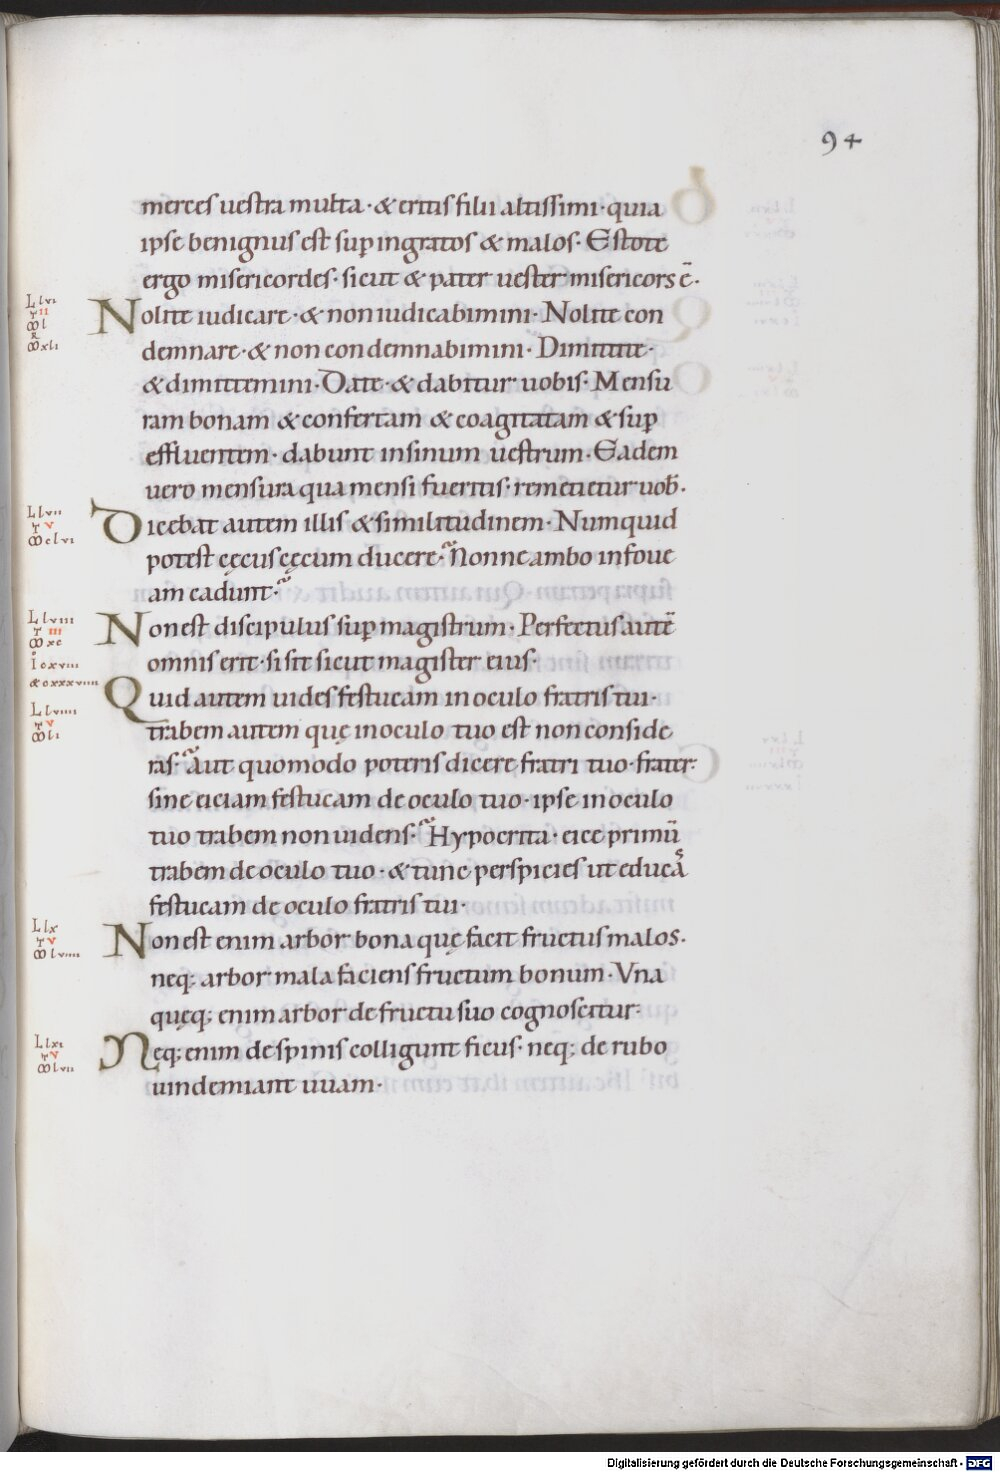 94
merces uestra multa · & eritis filii altissimi · quia
ipse benignus est sup̱ ingratos & malos · Estote
ergo misericordes · sicut & pater uester misericors ē ·
L lvi
T II
M l
R
M xli
Nolite iudicare · & non iudicabimini · Nolite con
demnare · & non condemnabimini · Dimittite ·
& dimittemini · Date · & dabitur uobis · Mensu
ram bonam & confertam & coagitatam & sup̱
effluentem · dabunt in sinum uestrum · Eadem
uero mensura qua mensi fueritis · remetietur uob̄ ·
L lvii
T V
M clvi
Dicebat autem illis & similitudinem · Numquid
potest cęcus cęcum ducere · Nonne ambo in foue
am cadunt ·
L lviii
T III
M xc
Io cxviii
& cxxxviiii
Non est discipulus sup̱ magistrum · Perfectus autē
omnis erit · si sit sicut magister eius ·
L lviiii
T V
M li
Quid autem uides festucam in oculo fratris tui ·
trabem autem quę in oculo tuo est non conside
ras · Aut quomodo poteris dicere fratri tuo · frater ·
sine eiciam festucam de oculo tuo · ipse in oculo
tuo trabem non uidens · Hypocrita · eice primū
trabem de oculo tuo · & tunc perspicies ut educā
festucam de oculo fratris tui ·
L lx
T V
M lviiii
Non est enim arbor bona quę facit fructus malos ·
neq; arbor mala faciens fructum bonum · Vna
quęq; enim arbor de fructu suo cognoscitur ·
L lxi
T V
M lvii
Neq; enim de spinis colligunt ficus · neq; de rubo
uindemiant uuam ·
Digitalisierung gefördert durch die Deutsche Forschungsgemeinschaft - DFG